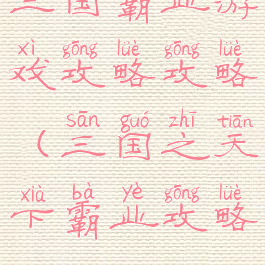 三国霸业游
xì gōng lüè gōng lüè
戏攻略攻略
sān guó zhī tiān
（三国之天
xià bà yè gōng lüè
下霸业攻略